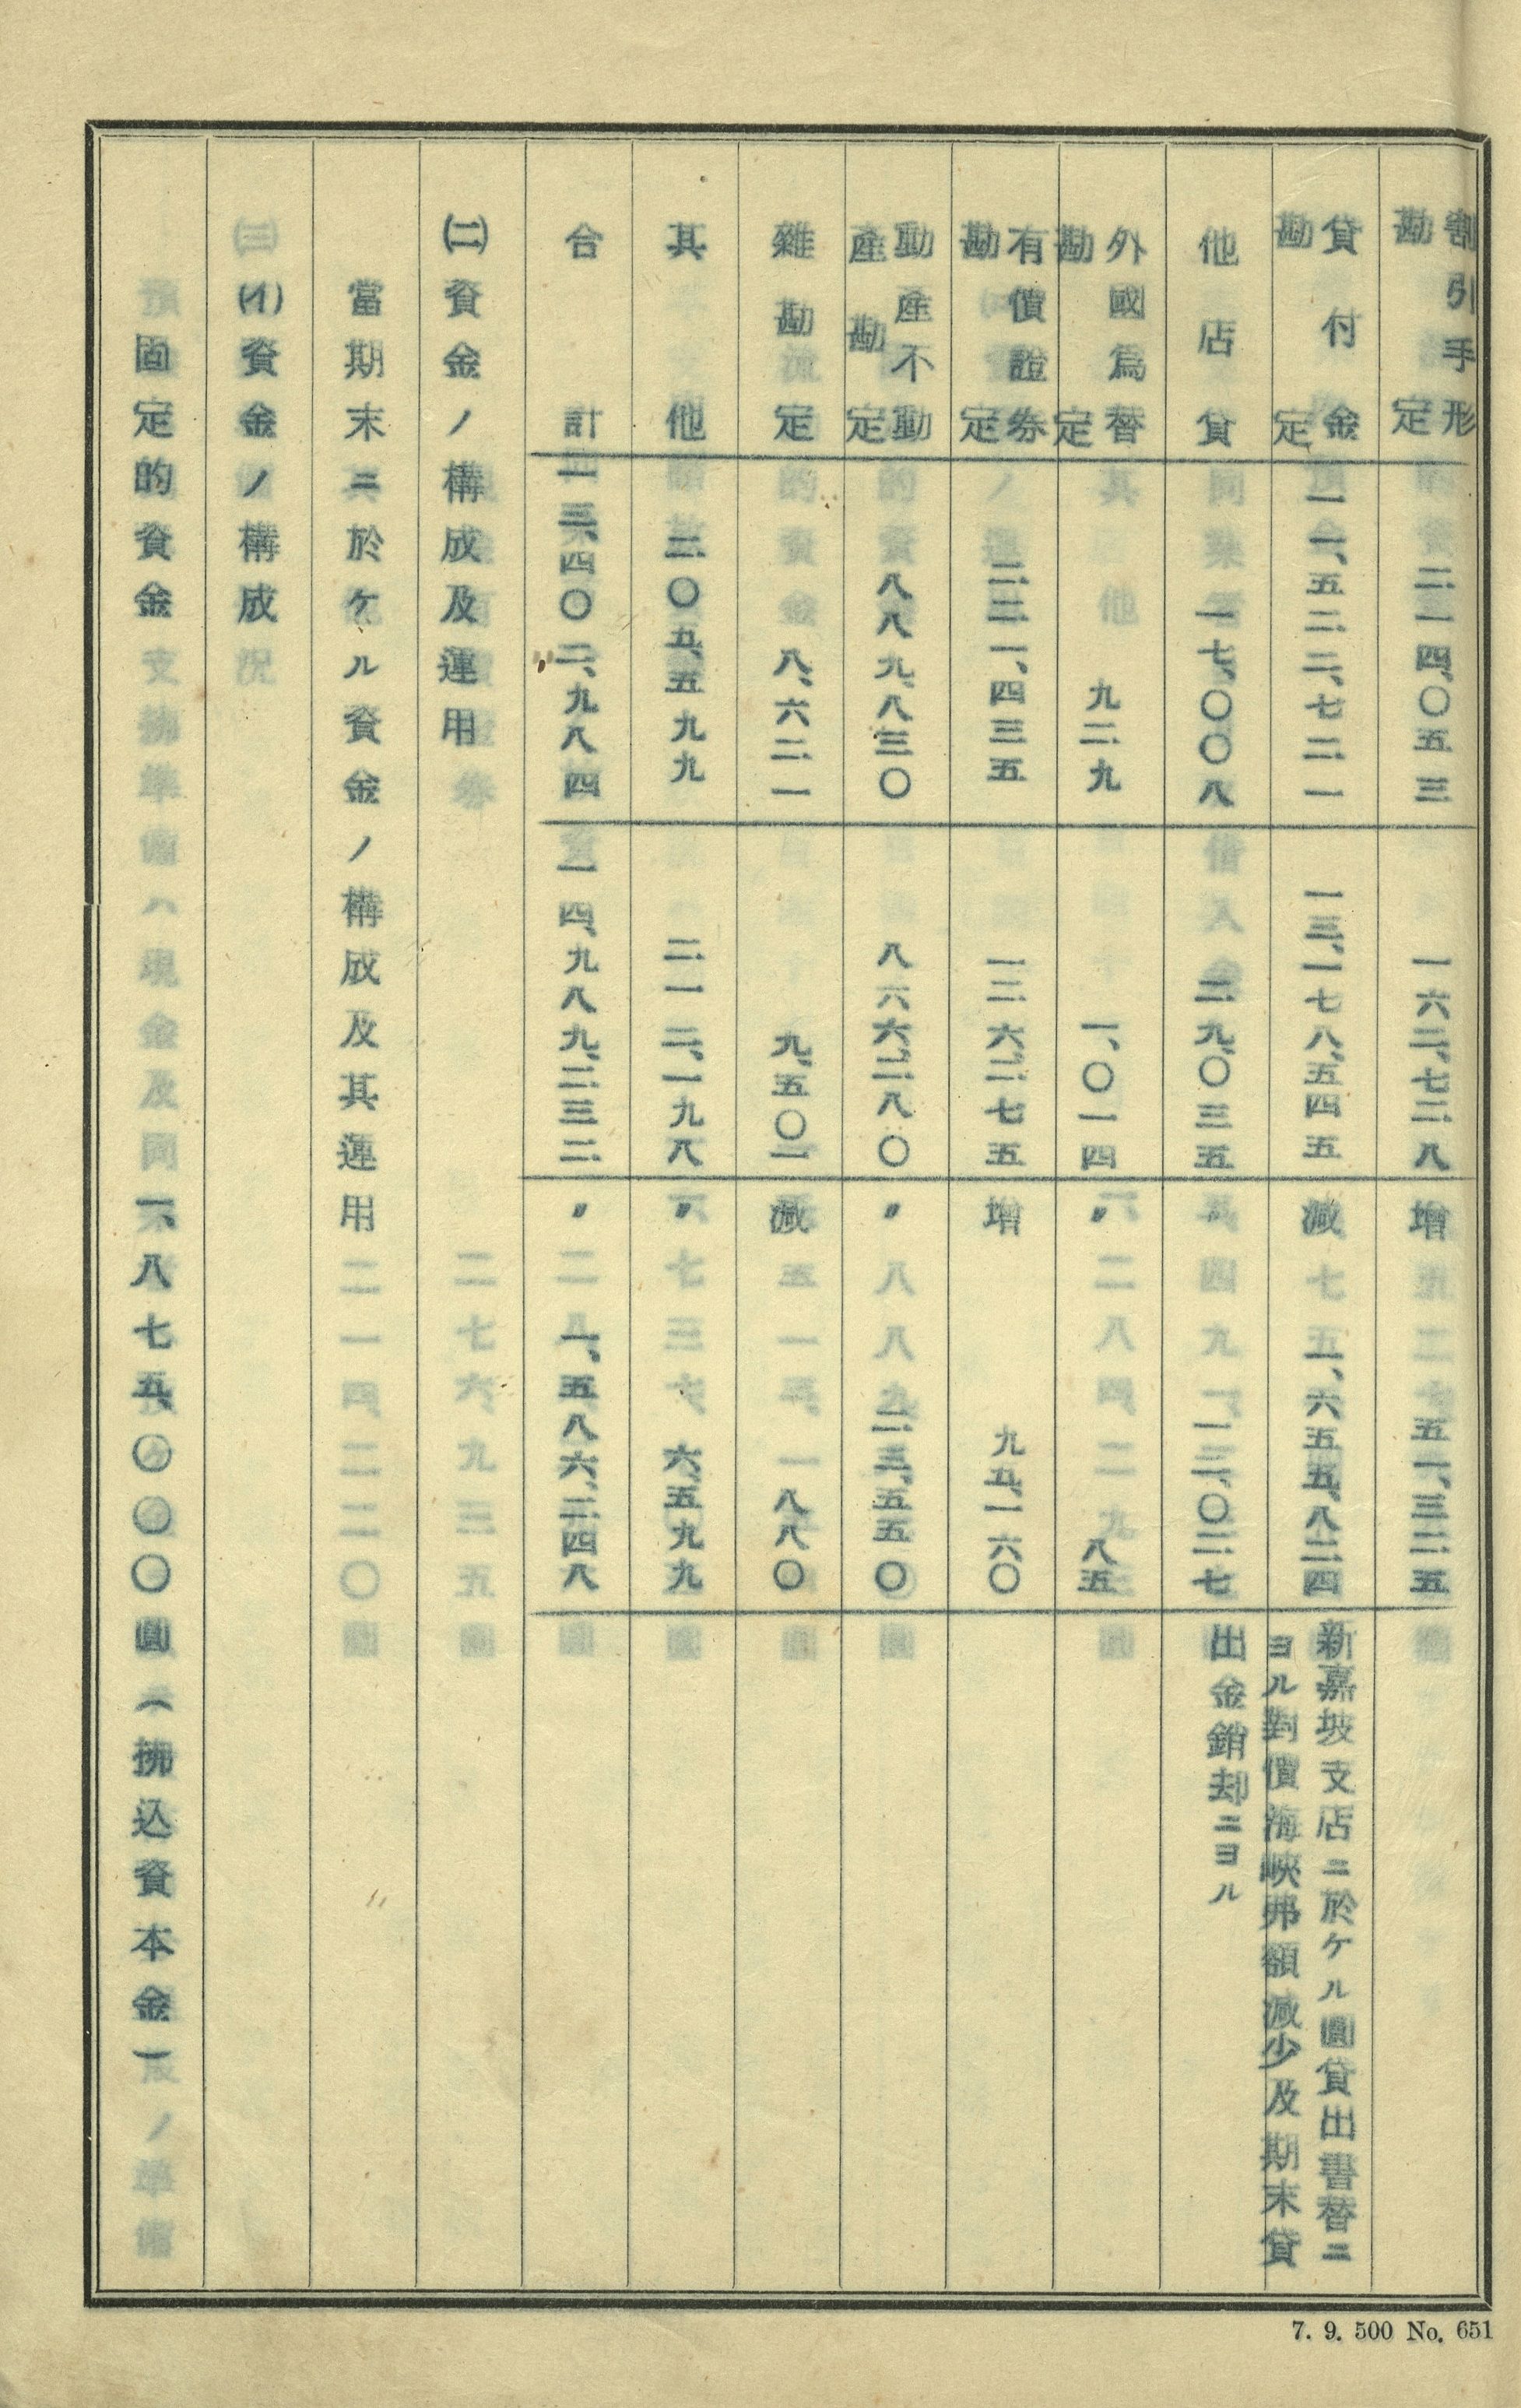 割引手形勘定 二一四、〇五三 一六二、七二八 増 五一、三二五
貸付金勘定 一一、五二二、七二一 一三、一七八、五四五 減 一、六五五、八二四 新嘉坡支店ニ於ケル圓貸出書替ニ
ヨル對價海峽弗額減少及期末貸
出金銷却ニヨル
他店貸 一七、〇〇八 二九、〇三五 〃 一二、〇二七
外國爲替勘定 九二九 一、〇一四 〃 八五
有價證券勘定 二二一、四三五 一二六、二七五 増 九五、一六〇
動産不動産勘定 八八九、八三〇 八六六、二八〇 〃 二三、五五〇
雜勘定 八、六二一 九、五〇一 減 八八〇
其他 二〇五、五九九 二一二、一九八 〃 六、五九九
合計 一三、四〇二、九八四 一四、九八九、二三二 〃 一、五八六、二四八
㈡資金ノ構成及運用
當期末ニ於ケル資金ノ構成及其運用
(イ)資金ノ構成
固定的資金 一、八七五、〇〇〇圓(拂込資本金)
7. 9. 500 No. 651